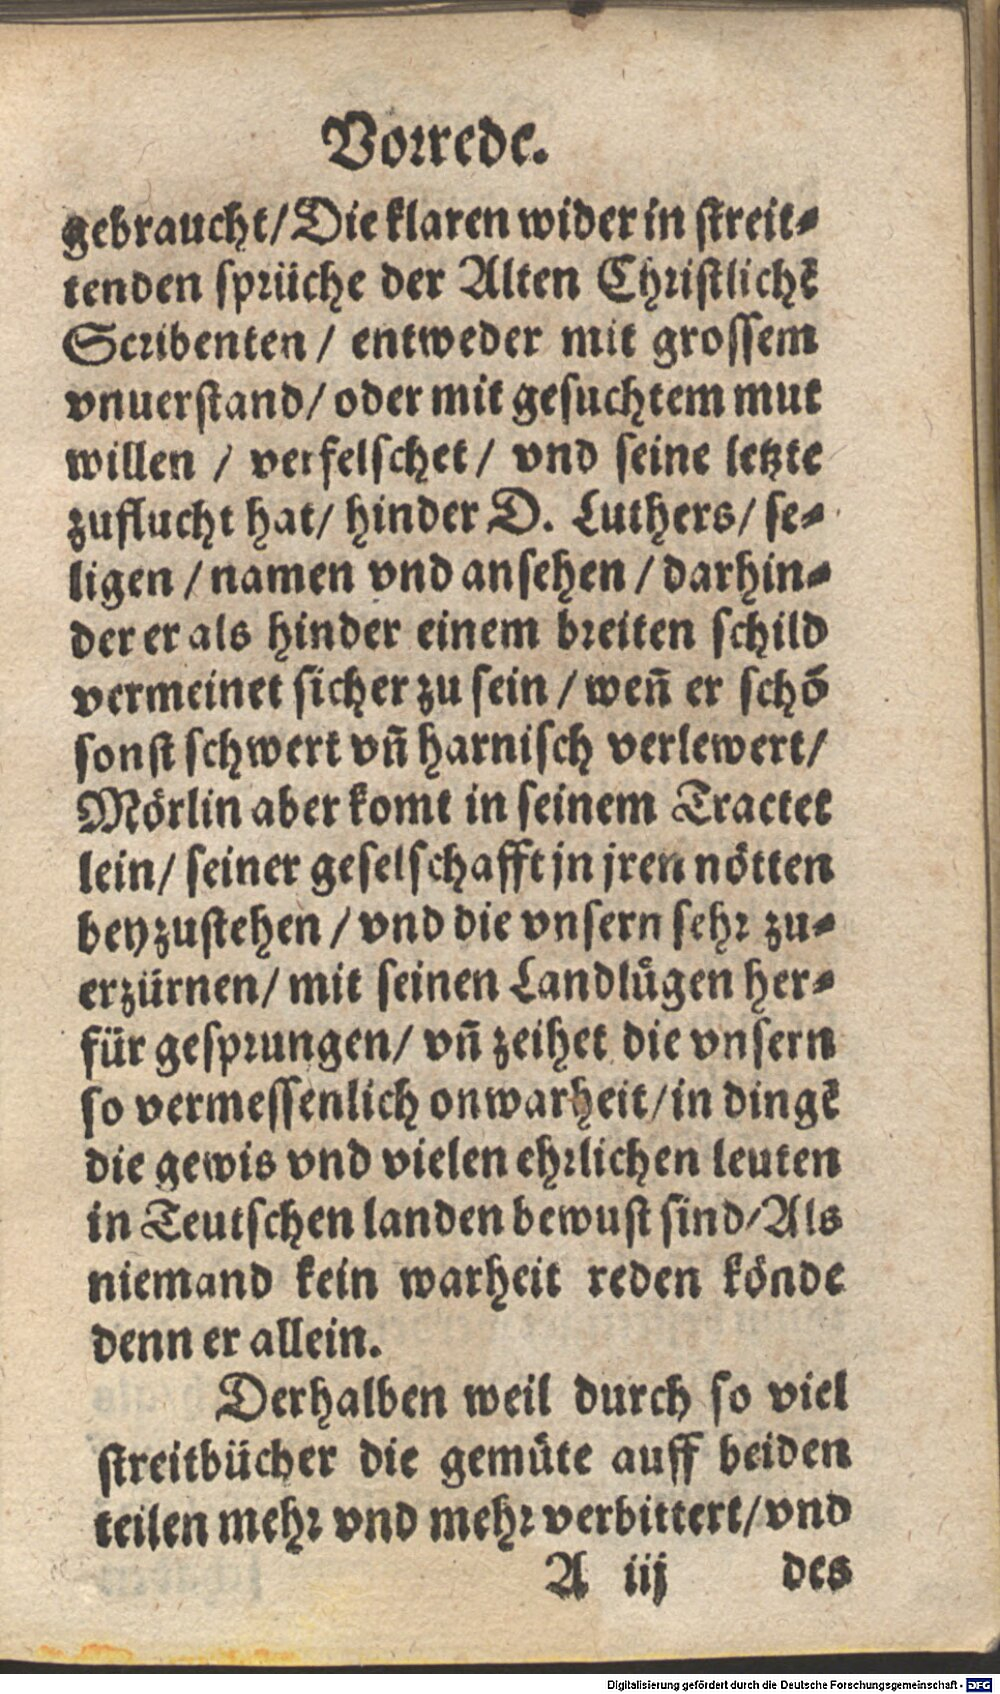 Vorrede.
gebraucht/Die klaren wider in streit⸗
tenden sprüche der Alten Christlichẽ
Scribenten / entweder mit grossem
vnuerstand/ oder mit gesuchtem mut
willen / verfelschet / vnd seine letzte
zuflucht hat/ hinder D. Luthers/ se⸗
ligen / namen vnd ansehen / darhin⸗
der er als hinder einem breiten schild
vermeinet sicher zu sein / weñ er schõ
sonst schwert vñ harnisch verlewert/
Mörlin aber komt in seinem Tractet
lein/ seiner geselschafft jn jren nötten
beyzustehen / vnd die vnsern sehr zu⸗
erzürnen/ mit seinen Landlügen her⸗
für gesprungen/ vñ zeihet die vnsern
so vermessenlich onwarheit/in dingẽ
die gewis vnd vielen ehrlichen leuten
in Teutschen landen bewust sind/Als
niemand kein warheit reden könde
denn er allein.
Derhalben weil durch so viel
streitbücher die gemüte auff beiden
teilen mehr vnd mehr verbittert/vnd
A iij des
Digitalisierung gefördert durch die Deutsche Forschungsgemeinschaft - DFG